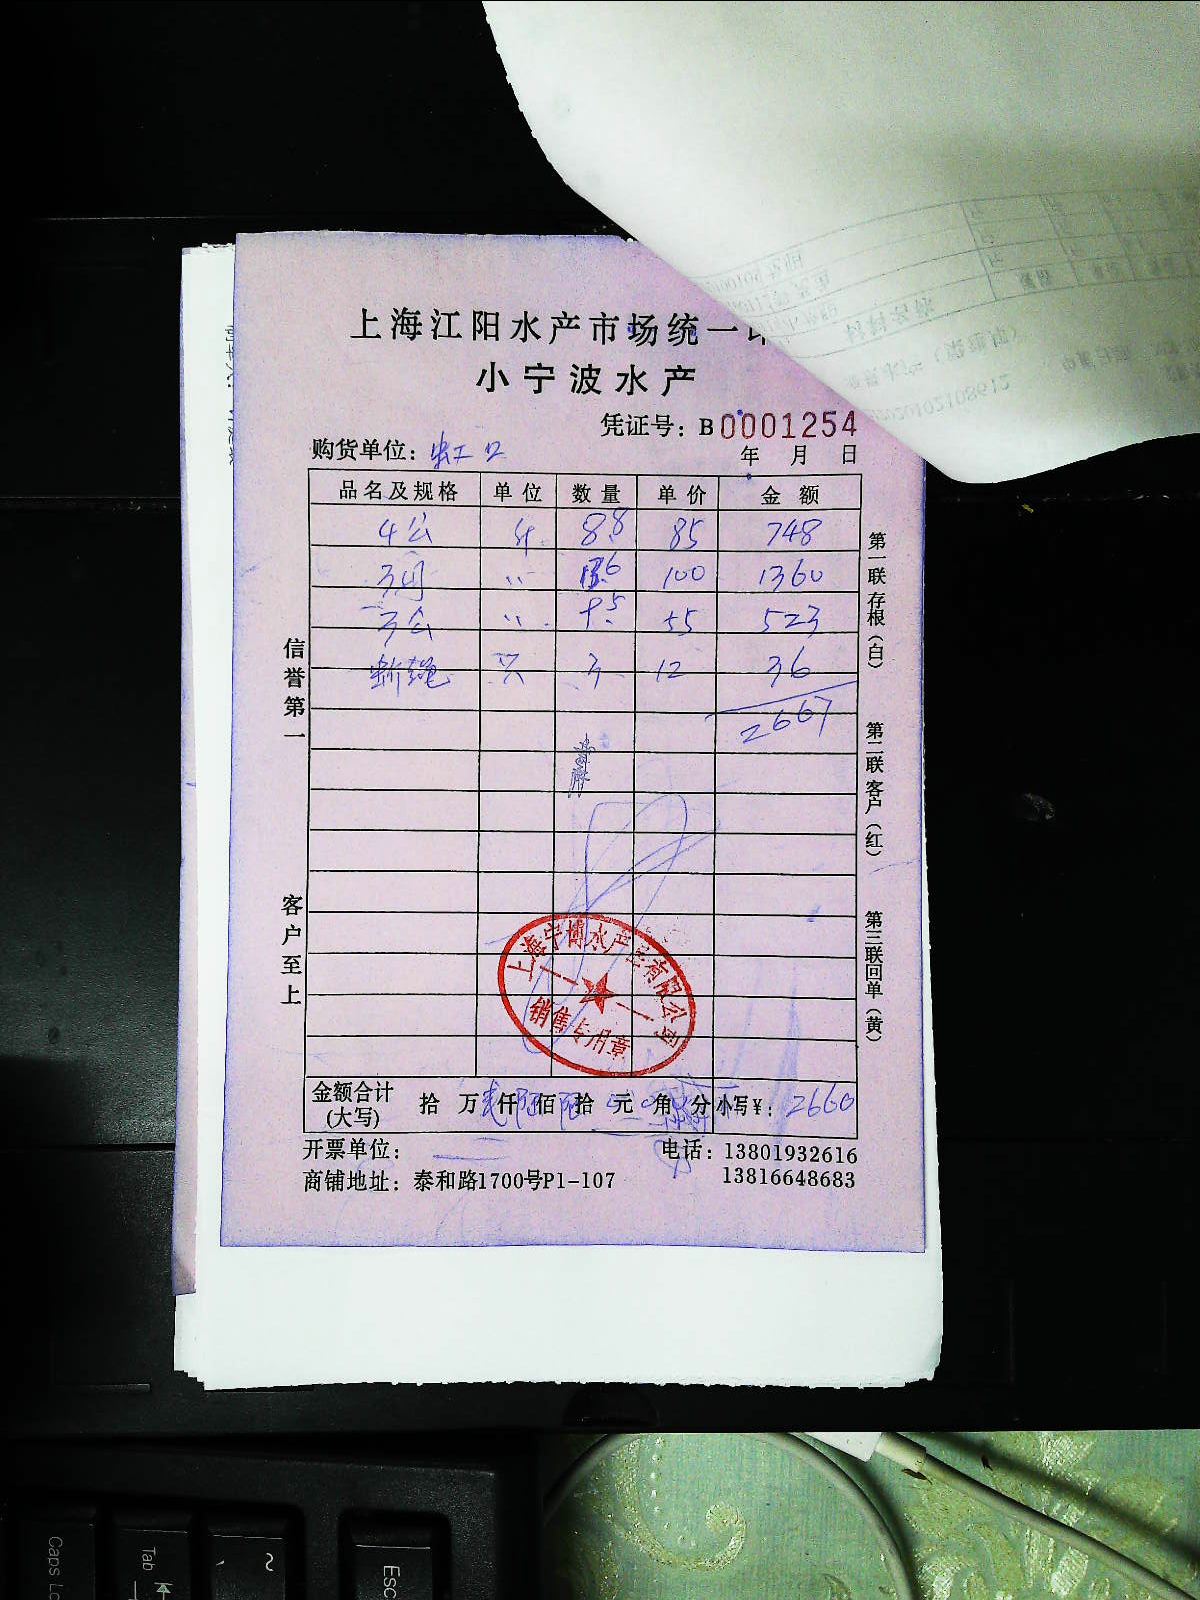 上海江阳水产市场统一
小宁波水产
凭证号：B0001254
购货单位：虹口 年 月 日
品名及规格 单位 数量 单价 金额
4公 斤 8.8 85 748
3母 〃 13.6 100 1360
3公 〃 9.5 55 523
只 3 12 36
2667
信誉第一
客户至上
第一联存根（白）
第二联客户（红）
第三联回单（黄）
上海宁博水产 有限公司
销售专用章
金额合计(大写) 拾 万 仟 佰 拾 元 角 分 小写¥：2660
开票单位： 电话：13801932616
商铺地址：泰和路1700号P1-107 13816648683
Caps Lo
Tab
~
Esc